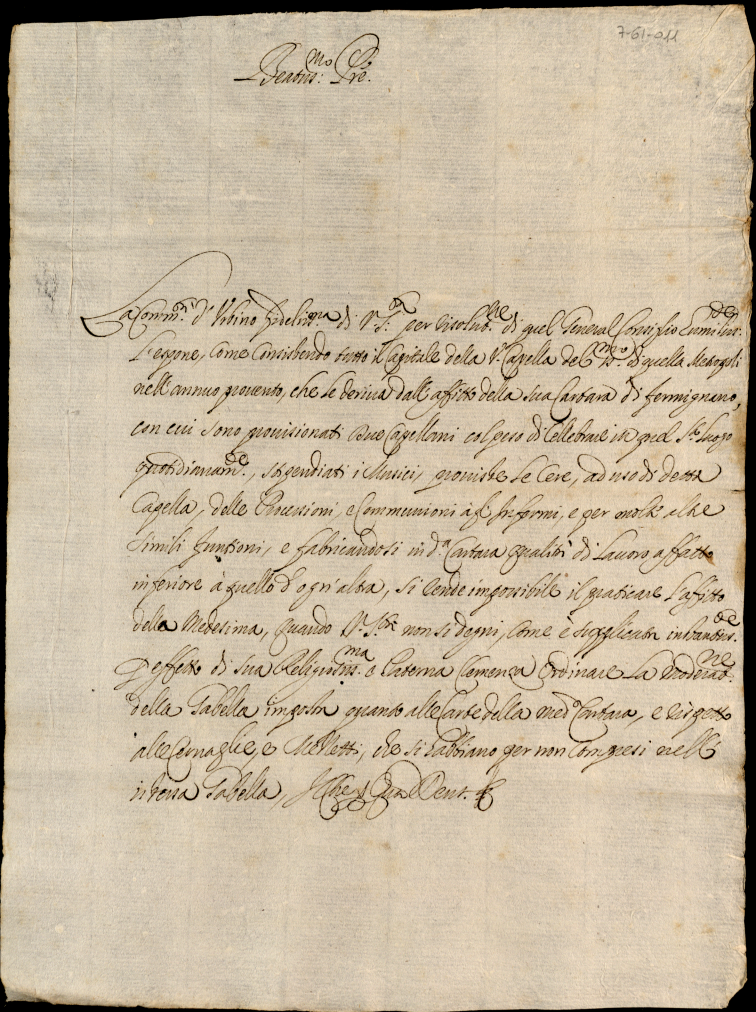 7-61-011
Beatiss:mo Pre.
La Comm.tà d'Urbino fidelis.ma di V. S.tà per risolut.ne di quel General Consiglio humiliss:te
l'espone, come consistendo tutto il Capitale della V. Capella del SS.mo di quella Metropoli
nell'annuo provento, che se deriva dall'affitto della sua Cartara di fermignano,
con cui sono provisionati due Capellani col peso di Cellebrare in quel S.to luogo
quotidianam.te, stipendiati i Musici, proviste le Cere, ad uso di detta
Capella, delle Processioni, e Communioni à gl'Infermi, e per molte altre
simili funtioni, e fabricandosi in d.a Cartara qualità di lavoro affatto
inferiore à quello d'ogn'altra, si rende impossibile il praticare l'affitto
della Medesima, quando V. S.tà non si degni, come è supplicata instantiss.te
p effetto di sua Religiosiss.ma e Paterna Clemenza Ordinare la moderat.ne
della Tabella imposta quando alle Carte della med.a Cartara, e rispetto
alle Cernaglie, e Mezzetti, che si habbiano per non Compresi nell'
istessa Tabella, Il che